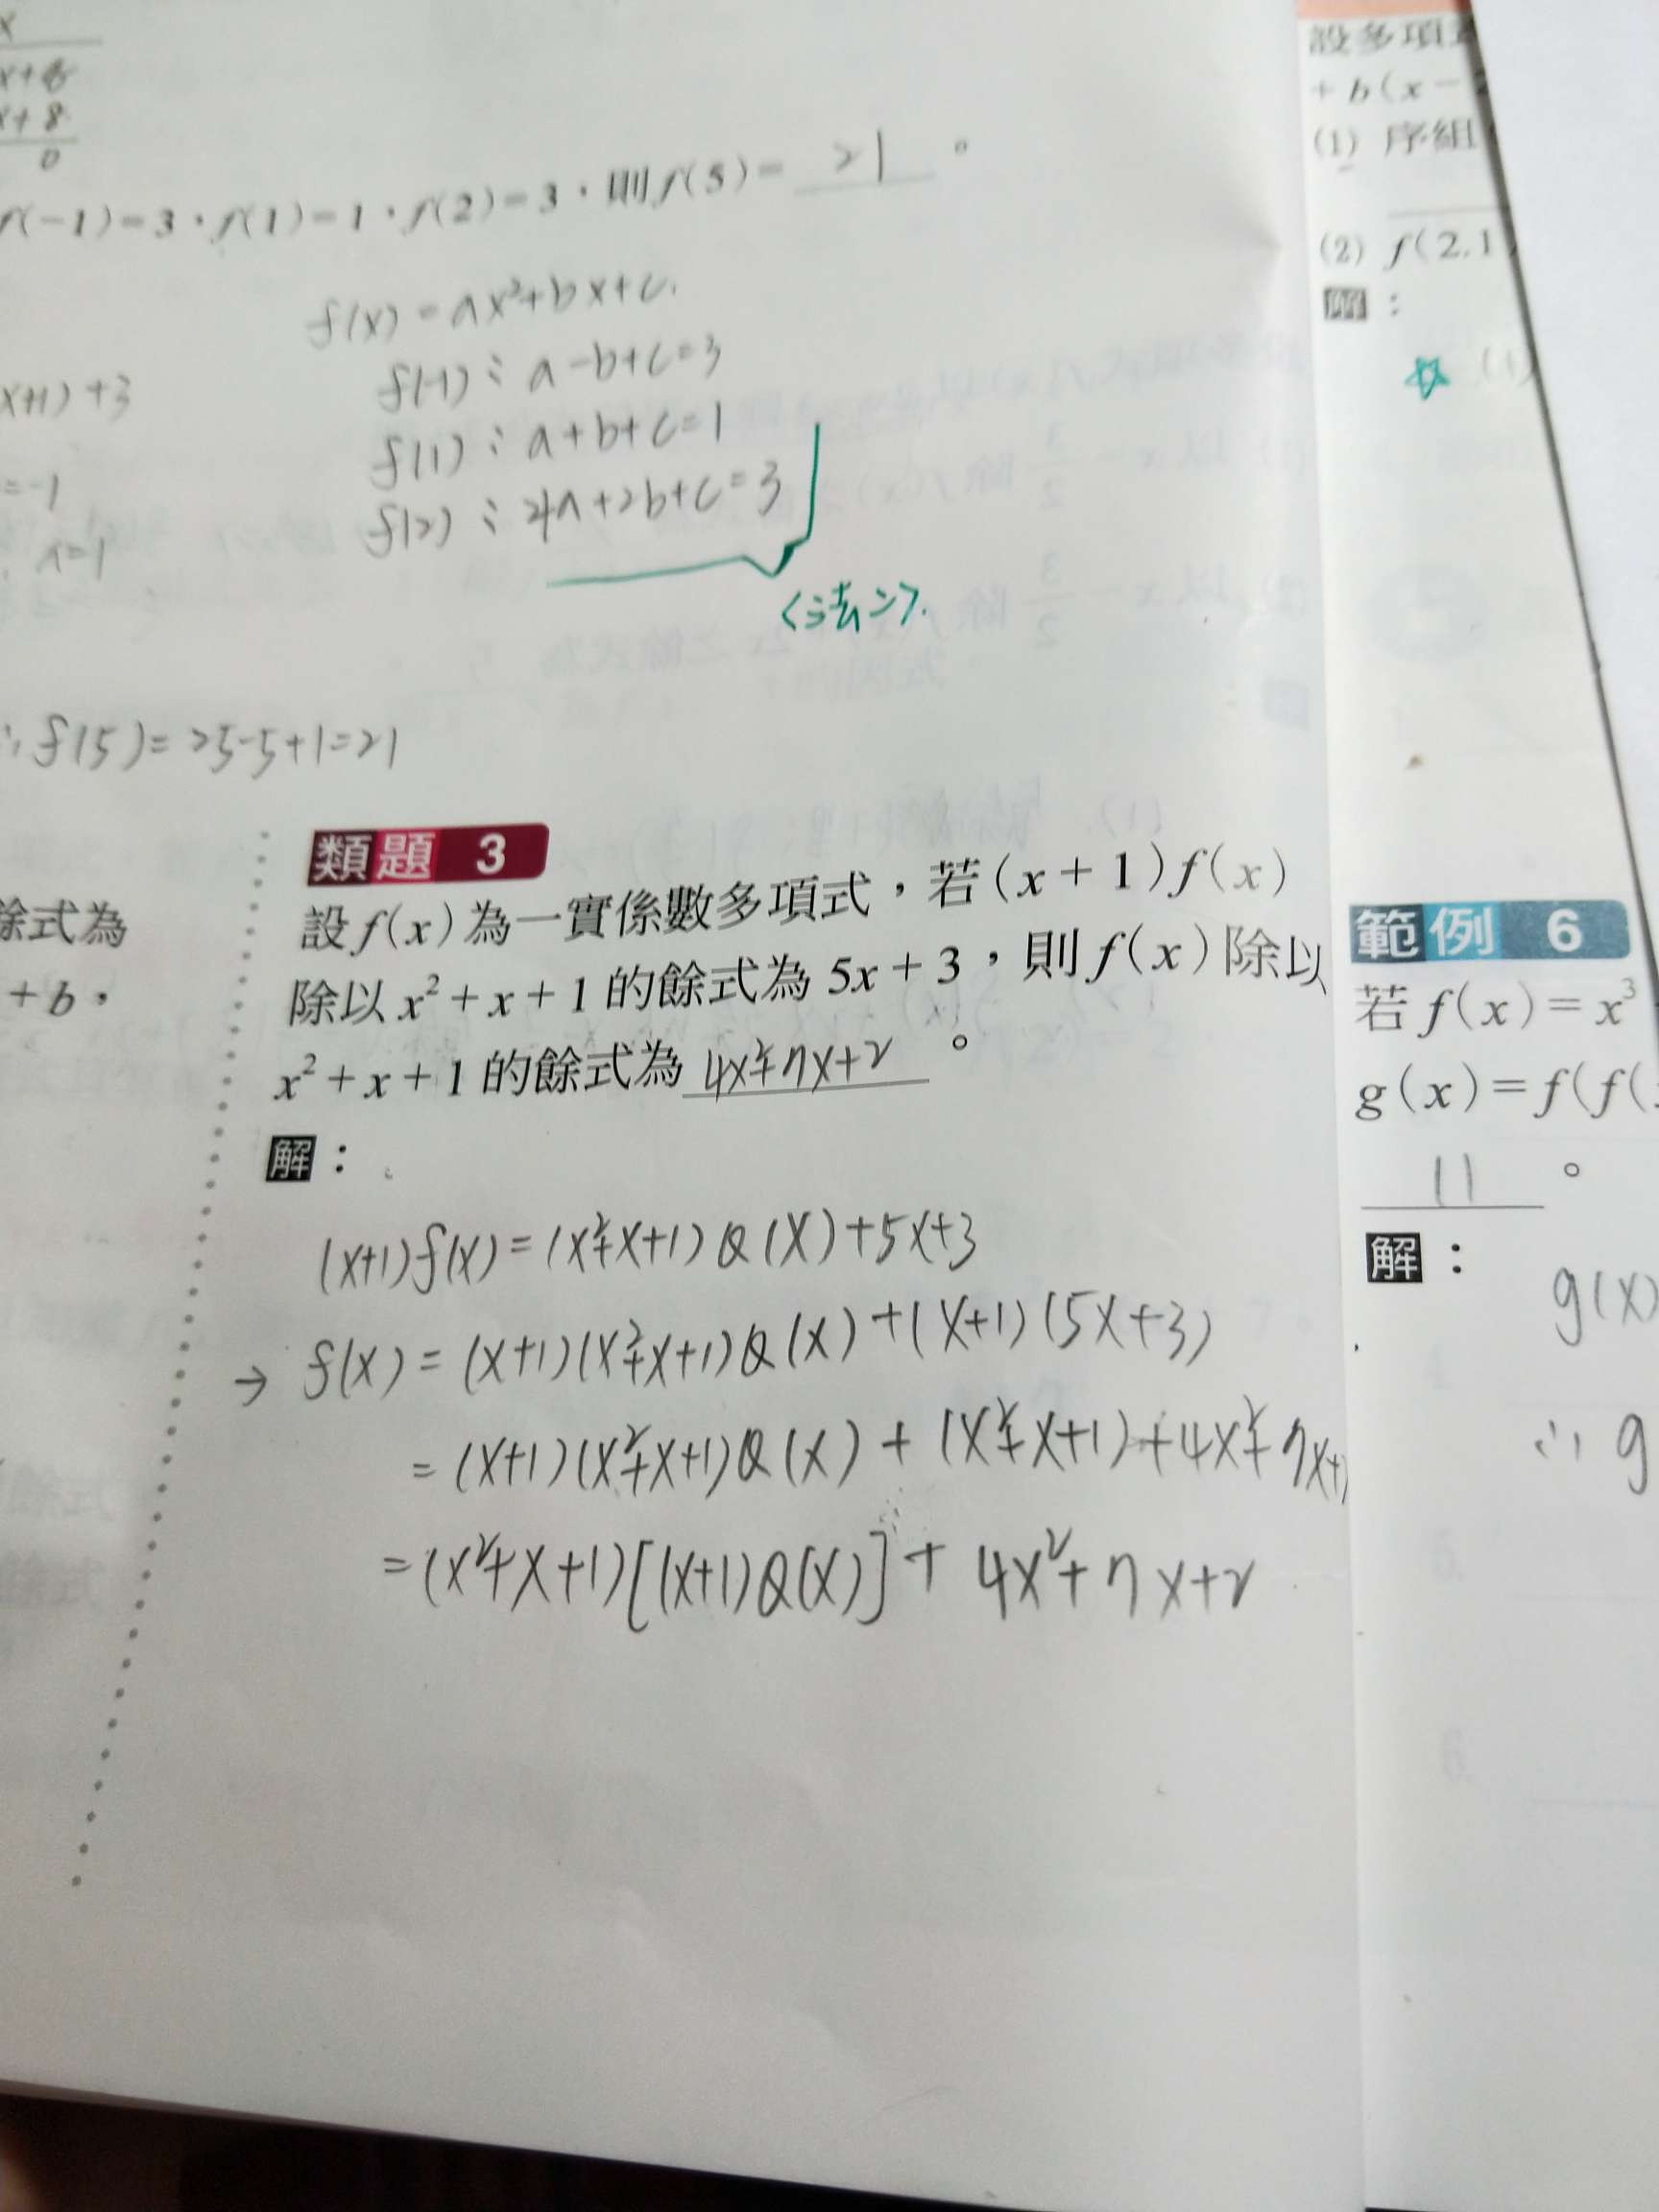 x
x+8
x+8
0
f(-1)=3，f(1)=1，f(2)=3，則f(5)= 21 。
f(x)=ax²+bx+c.
f(-1)：a-b+c=3
f(1)：a+b+c=1
f(2)：4a+2b+c=3
<法二>.
(x+1)+3
=-1
a=1
∴f(5)=25-5+1=21
餘式為
+b，
類題 3
設f(x)為一實係數多項式，若(x+1)f(x)
除以x²+x+1的餘式為5x+3，則f(x)除以
x²+x+1的餘式為 4x²+7x+2 。
解：
(x+1)f(x)=(x²+x+1)Q(x)+5x+3
→ f(x)=(x+1)(x²+x+1)Q(x)+(x+1)(5x+3)
=(x+1)(x²+x+1)Q(x)+(x²+x+1)+4x²+7x+
=(x²+x+1)[(x+1)Q(x)]+4x²+7x+2
設多項
+b(x-
(1) 序組
(2) f(2.1
解：
☆ (1)
範例 6
若f(x)=x³
g(x)=f(f(
11 。
解：
g(x)
∴g